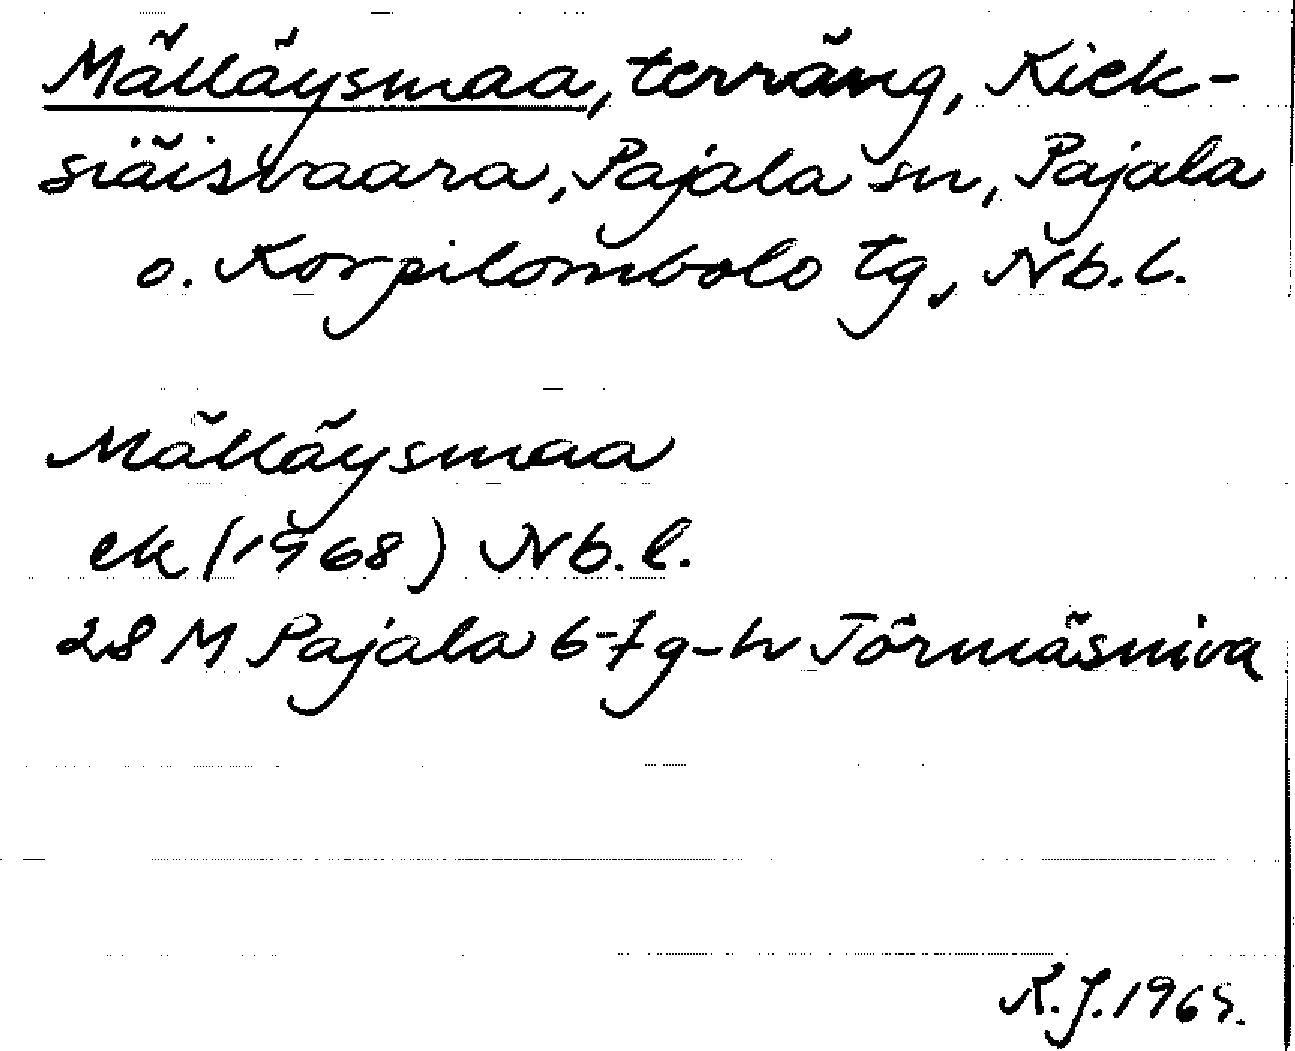 Mälläysmaa, terräng, Kiek-
siäisvaara, Pajala sn, Pajala
o. Korpilombolo tg, Nb.l.
Mälläysmaa
ek (1968) Nb.l.
28 M Pajala 6-7g-h Törmäsniva
K.J. 1969.